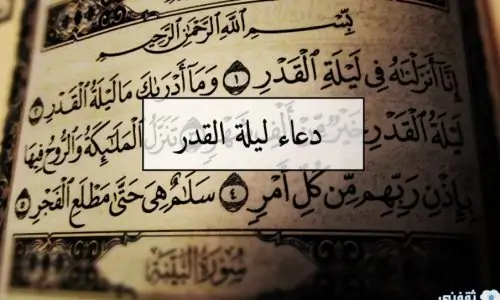 بِسْمِ ٱللَّهِ ٱلرَّحْمَٰنِ ٱلرَّحِيمِ
إِنَّآ أَنزَلْنَٰهُ فِى لَيْلَةِ ٱلْقَدْرِ ١ وَمَآ أَدْرَىٰكَ مَا لَيْلَةُ ٱلْقَدْرِ ٢
لَيْلَةُ ٱلْقَدْرِ خَيْرٌ مِّنْ أَلْفِ تَنَزَّلُ ٱلْمَلَٰٓئِكَةُ وَٱلرُّوحُ فِيهَا
دعاء ليلة القدر
بِإِذْنِ رَبِّهِم مِّن كُلِّ أَمْرٍ ٤ سَلَٰمٌ هِىَ حَتَّىٰ مَطْلَعِ ٱلْفَجْرِ ٥
سُورَةُ ٱلْبَيِّنَةِ
ثقفني